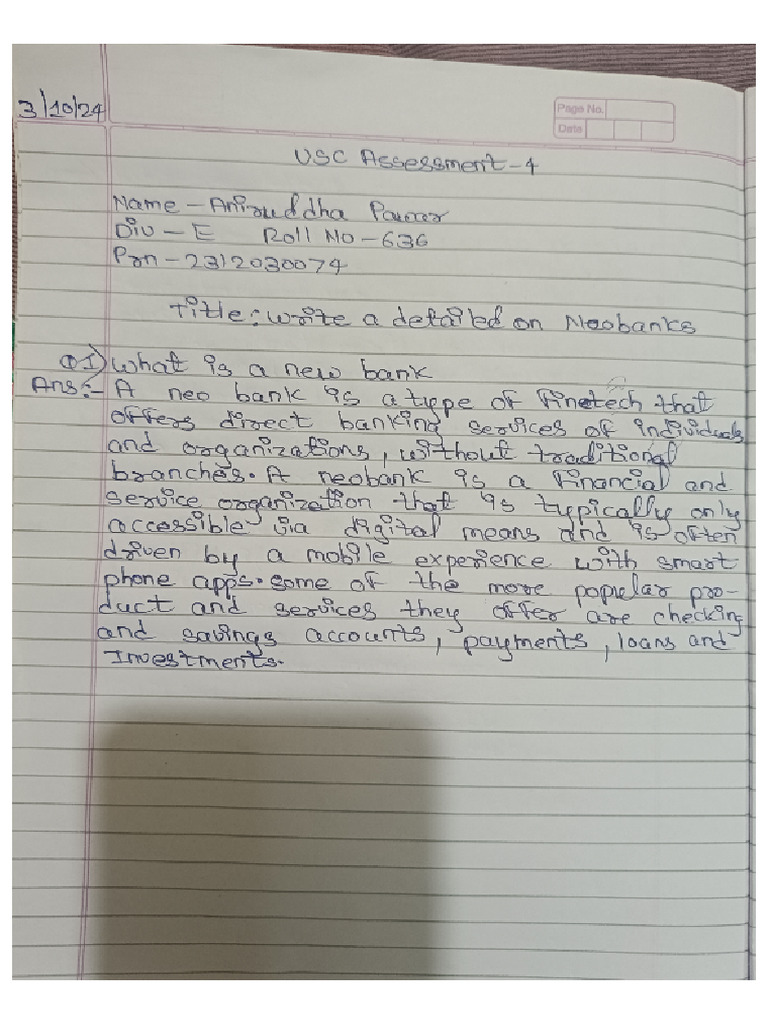 3/10/24
Page No.
Date
VSC Assessment-4
Name - Aniruddha Pawar
Div - E Roll No - 636
Prn - 2312030074
Title: write a detailed on Neobanks
Q1) What is a new bank
Ans:- A neo bank is a type of Finetech that
offers direct banking services of individuals
and organizations, without traditional
branches. A neobank is a Financial and
service organization that is typically only
accessible via digital means and is often
driven by a mobile experience with smart
phone apps. some of the more popular pro-
duct and services they offer are checking
and savings accounts, payments, loans and
Investments.